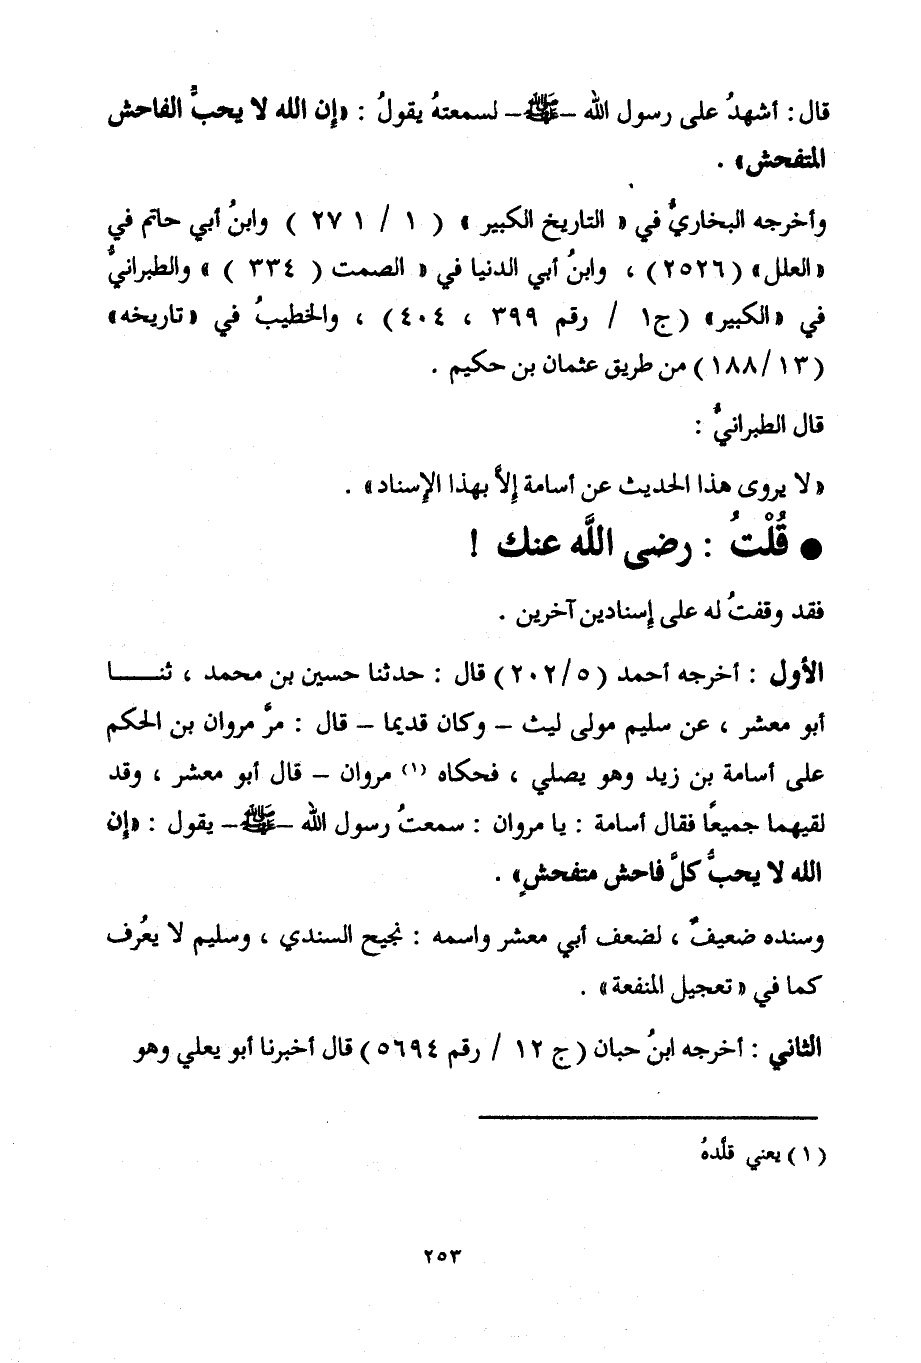 قال : أشهدُ على رسول الله -ﷺ- لسمعتهُ يقولُ : «إن الله لا يحبُّ الفاحش
المتفحش» .
وأخرجه البخاريُّ في « التاريخ الكبير » ( ١ / ٢٧١ ) وابنُ أبي حاتم في
«العلل» (٢٥٢٦) ، وابنُ أبي الدنيا في « الصمت ( ٣٣٤ ) » والطبرانيُّ
في «الكبير» (ج١ / رقم ٣٩٩ ، ٤٠٤) ، والخطيبُ في «تاريخه»
(١٨٨/١٣) من طريق عثمان بن حكيم .
قال الطبرانيُّ :
« لا يروى هذا الحديث عن أسامة إلاَّ بهذا الإسناد» .
● قُلْتُ : رضى اللَّه عنك !
فقد وقفتُ له على إسنادين آخرين .
الأول : أخرجه أحمد (٢٠٢/٥) قال : حدثنا حسين بن محمد ، ثنـــا
أبو معشر ، عن سليم مولى ليث - وكان قديما - قال : مرَّ مروان بن الحكم
على أسامة بن زيد وهو يصلي ، فحكاه (١) مروان - قال أبو معشر ، وقد
لقيهما جميعًا فقال أسامة : يا مروان : سمعتُ رسول الله -ﷺ- يقول : «إن
الله لا يحبُّ كلَّ فاحش متفحشٍ» .
وسنده ضعيفٌ ، لضعف أبي معشر واسمه : نجيح السندي ، وسليم لا يعُرف
كما في «تعجيل المنفعة» .
الثاني : أخرجه ابنُ حبان (ج ١٢ / رقم ٥٦٩٤) قال أخبرنا أبو يعلي وهو
(١) يعني قلَّدهُ
٢٥٣